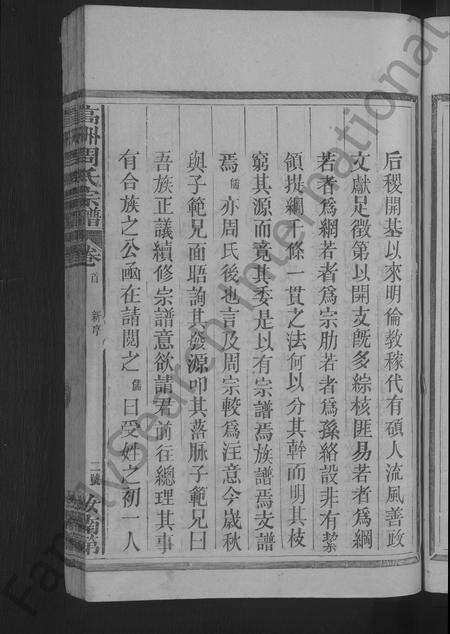 后稷開基以來明倫敎稼代有碩人流風善政
文獻足徵第以開支旣多綜核匪易若者爲綱
若者爲網若者爲宗肋若者爲孫絡設非有挈
領提綱千條一貫之法何以分其幹而明其枝
窮其源而竟其委是以有宗譜焉族譜焉支譜
焉儒亦周氏後也言及周宗較爲注意今歲秋
與子範兄面晤詢其發源叩其落脉子範兄曰
吾族正議續修宗譜意欲請君前往總理其事
有合族之公函在請閱之儒曰受姓之初一人
高洲周氏宗譜
卷首
新序
二號
汝南第
FamilySearch International